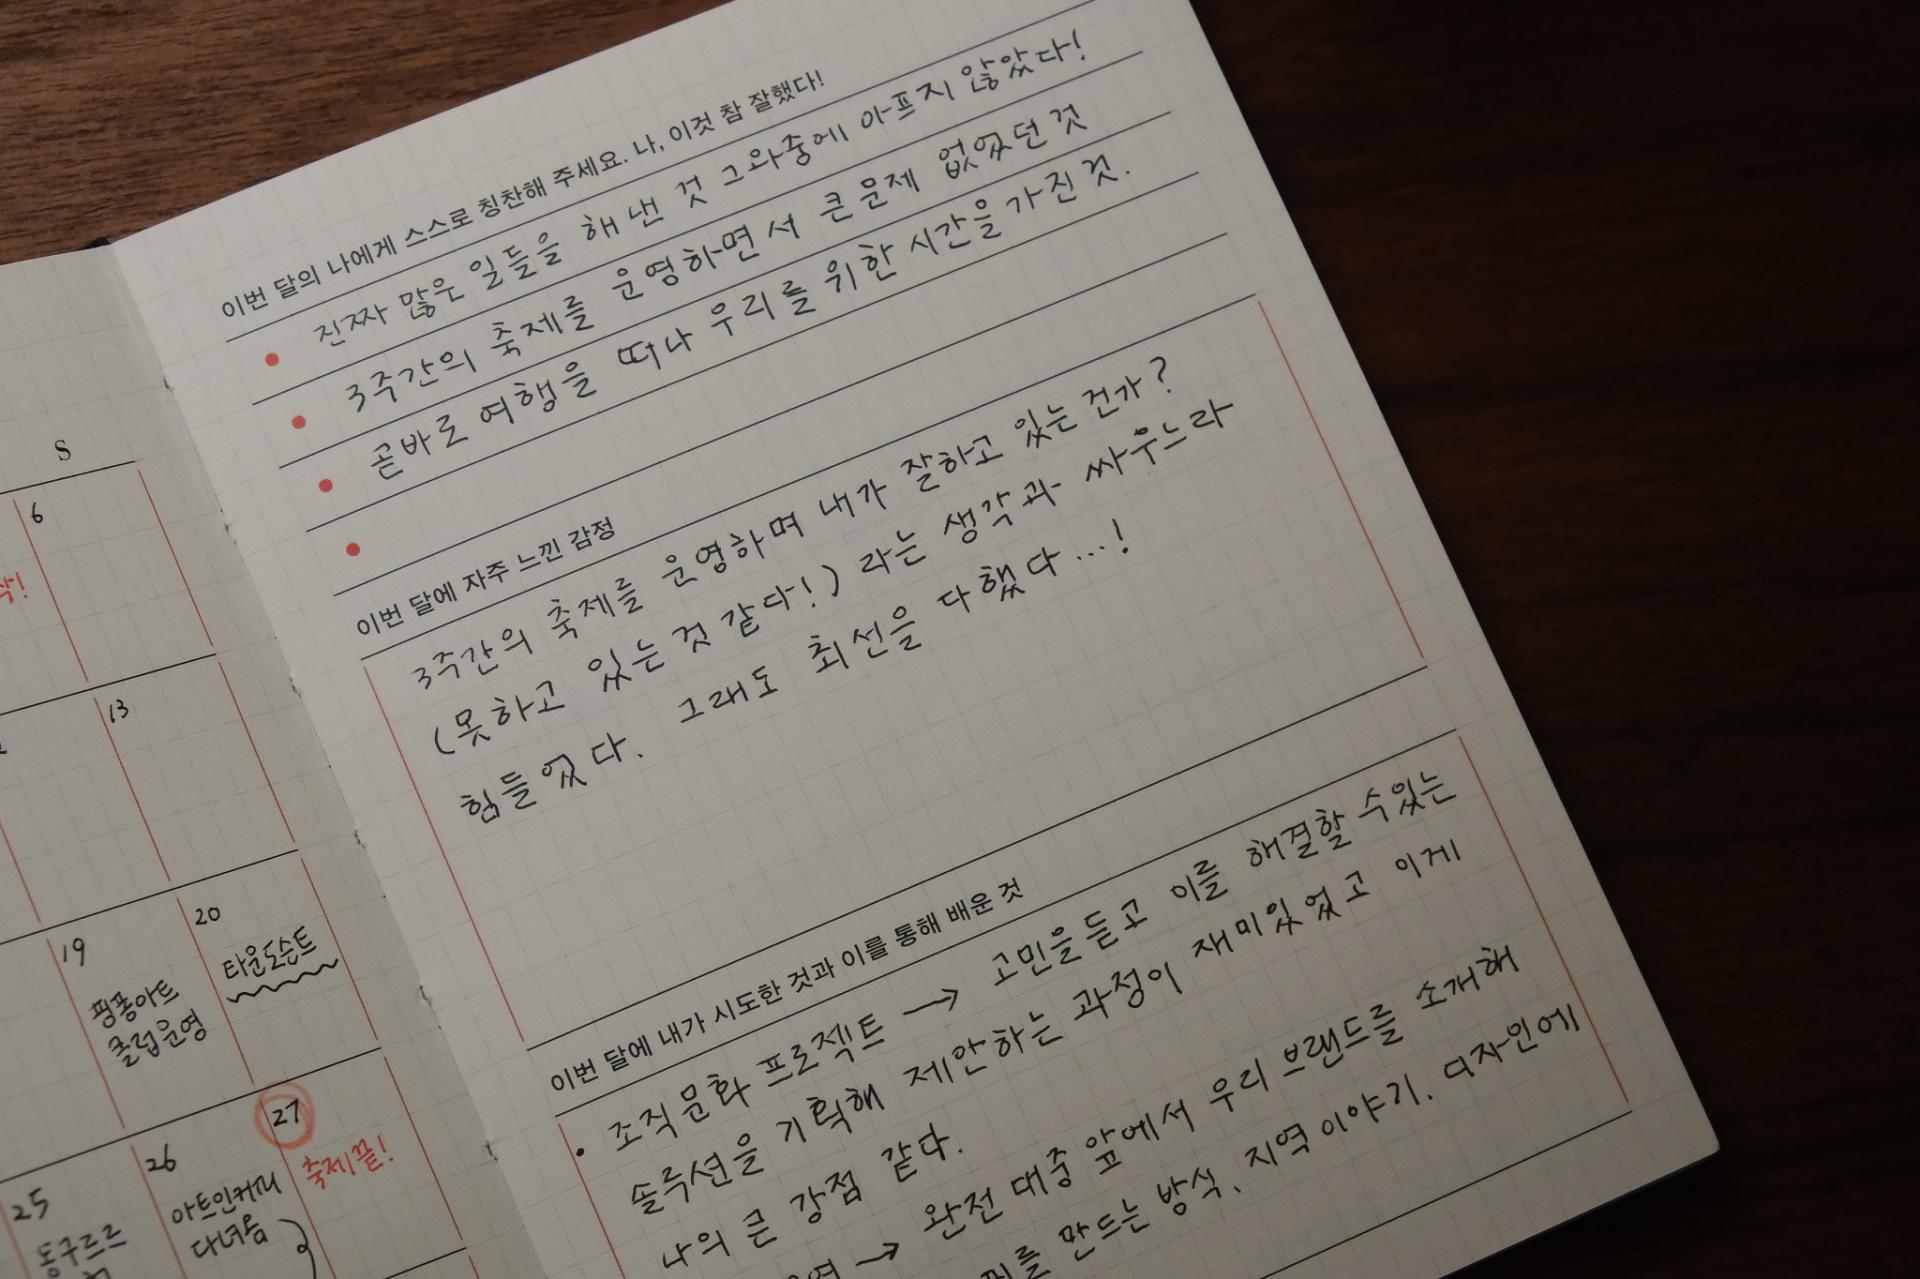 S
6
13
19
핑퐁아트
클럽운영
20
타운도슨트
25
동구르르
26
아트인커피
다녀옴
27
축제끝!
이번 달의 나에게 스스로 칭찬해 주세요. 나, 이것 참 잘했다!
진짜 많은 일들을 해낸 것 그와중에 아프지 않았다!
3주간의 축제를 운영하면서 큰문제 없었던 것
곧바로 여행을 떠나 우리를 위한 시간을 가진 것.
이번 달에 자주 느낀 감정
3주간의 축제를 운영하며 내가 잘하고 있는건가?
(못하고 있는 것 같다!) 라는 생각과 싸우느라
힘들었다. 그래도 최선을 다했다...!
이번 달에 내가 시도한 것과 이를 통해 배운 것
• 조직문화 프로젝트 → 고민을듣고 이를 해결할 수있는
솔루션을 기획해 제안하는 과정이 재미있었고 이게
나의 큰 강점 같다.
→ 완전 대중 앞에서 우리 브랜드를 소개해
를 만드는 방식, 지역이야기. 디자인에